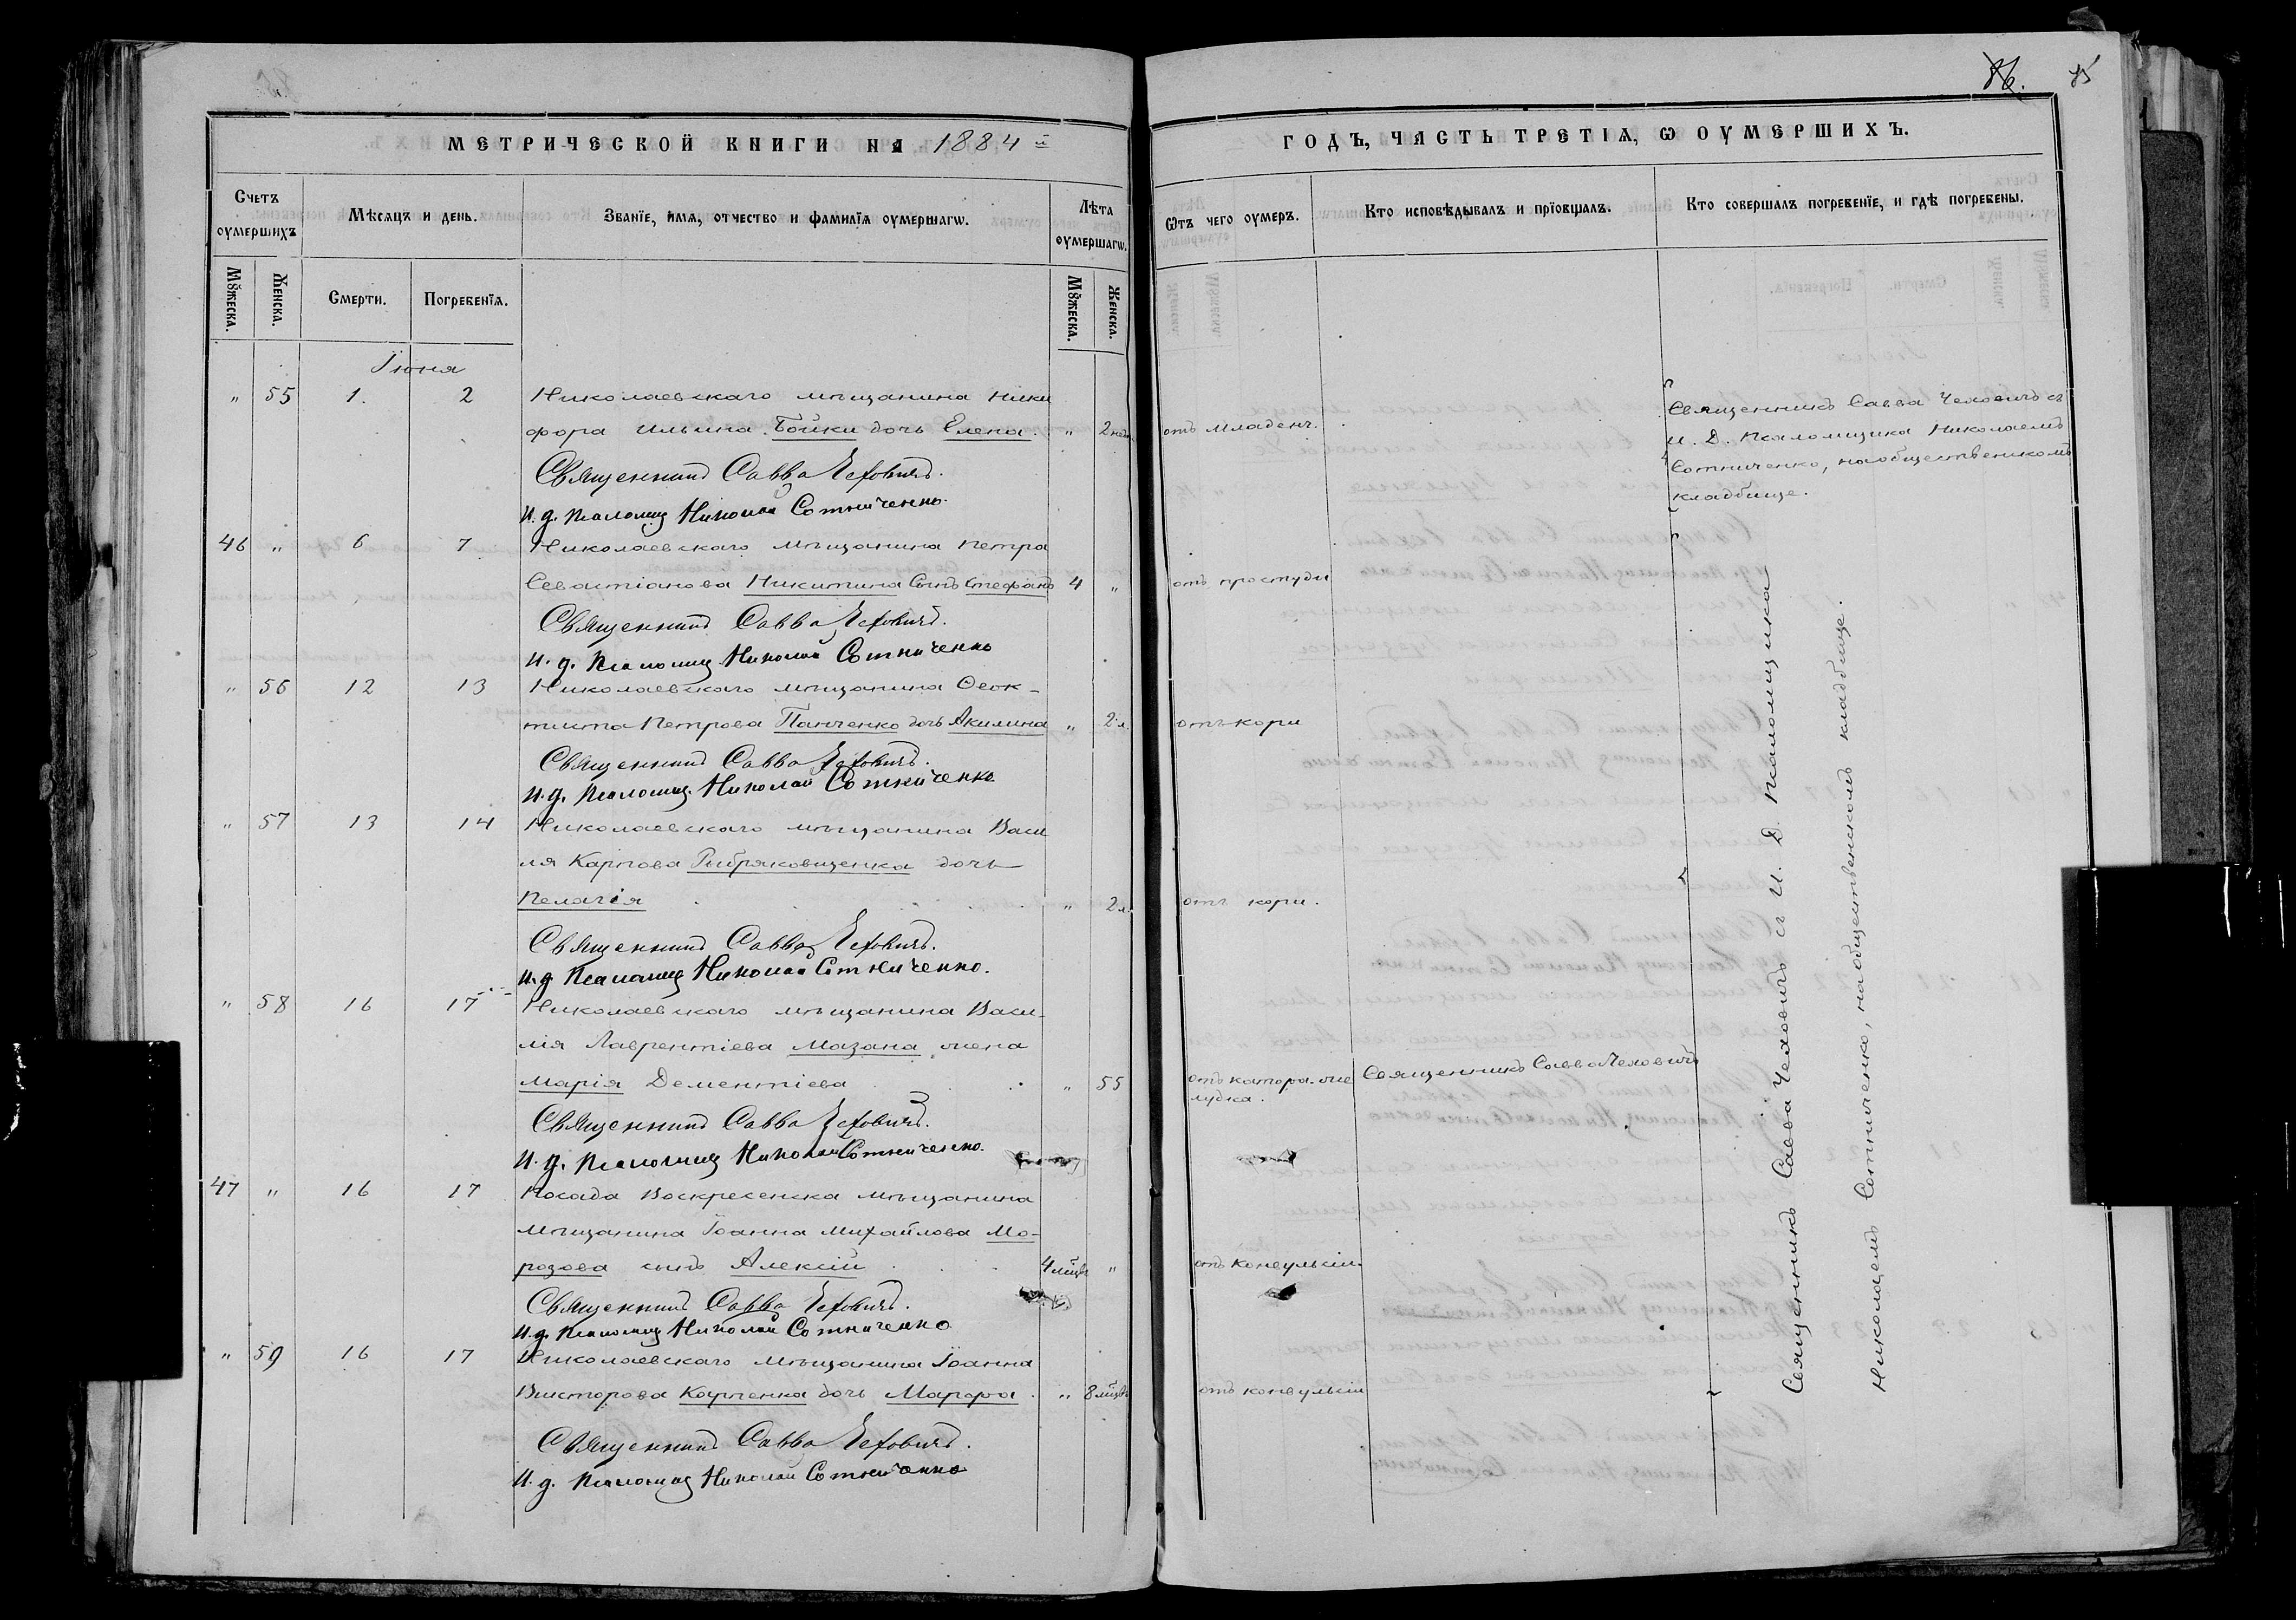 86. 85
МЕТРИЧЕСКОЙ КНИГИ НА 1884 й
ГОДЪ, ЧАСТЬ ТРЕТІѦ, Ѡ ОУМЕРШИХЪ.
Счетъ оумершихъ
Мѣсѧцъ и день.
Званїе, имѧ, отчество и фамилїѧ оумершагѡ.
Лѣта оумершагѡ.
Ѿтъ чего оумеръ.
Кто исповѣдывалъ и прїобщалъ.
Кто совершалъ погребенїе, и гдѣ погребены.
Мꙋжеска. Женска. Смерти. Погребенїѧ. Мꙋжеска. Женска.
Іюня
" 55 1. 2 Николаевскаго мѣщанина Ники
фора Ильина Бойки дочь Елена. " 2 нед. отъ младенч.
Священникъ Савва Чехович съ
и. д. Псаломщика Николаемъ
Сотниченко, на общественномъ
кладбище.
Священникъ Савва Чеховичъ.
И. д. Псаломщ Николай Сотниченко.
46 " 6 7 Николаевскаго мѣщанина Петра
Севастіанова Никитина сынъ Стефанъ 4 " отъ простуды
Священникъ Савва Чеховичъ.
И. д. Псаломщ Николай Сотниченко
" 56 12 13 Николаевскаго мѣщанина Ѳеок-
тиста Петрова Панченко дочь Акилина " 2 л. отъ кори
Священникъ Савва Чеховичъ.
И. д. Псаломщ. Николай Сотниченко
" 57 13 14 Николаевскаго мѣщанина Васи
лия Карпова дочь
Пелагія " 2 л. отъ кори.
Священникъ Савва Чеховичъ.
И. д. Псаломщ Николай Сотниченко.
" 58 16 17 Николаевскаго мѣщанина Васи-
лія Лаврентіева Мазана жена
Марія Дементіева " 55 отъ катара же
лудка. Священникъ Савва Чеховичъ
Священникъ Савва Чеховичъ.
И. д. Псаломщ Николай Сотниченко.
47 " 16 17 Посада Воскресенска мѣщанина
мѣщанина Іоанна Михайлова Мо-
розова сынъ Алексій 4 мѣцв " отъ конвульсіи.
Священникъ Савва Чеховичъ.
И. д. Псаломщ Николай Сотниченко
" 59 16 17 Николаевскаго мѣщанина Іоанна
Викторова Карпенка дочь Марфа. " 8 мѣцвъ отъ конвульсіи
Священникъ Савва Чеховичъ.
И. д. Псаломщ Николай Сотниченко
Священникъ Савва Чеховичъ съ И. Д. Псаломщика
Николаемъ Сотниченко, на общественномъ кладбище.